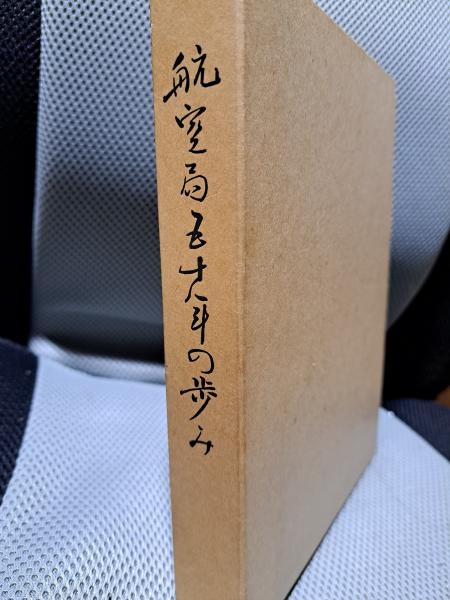 航空局五十年の歩み